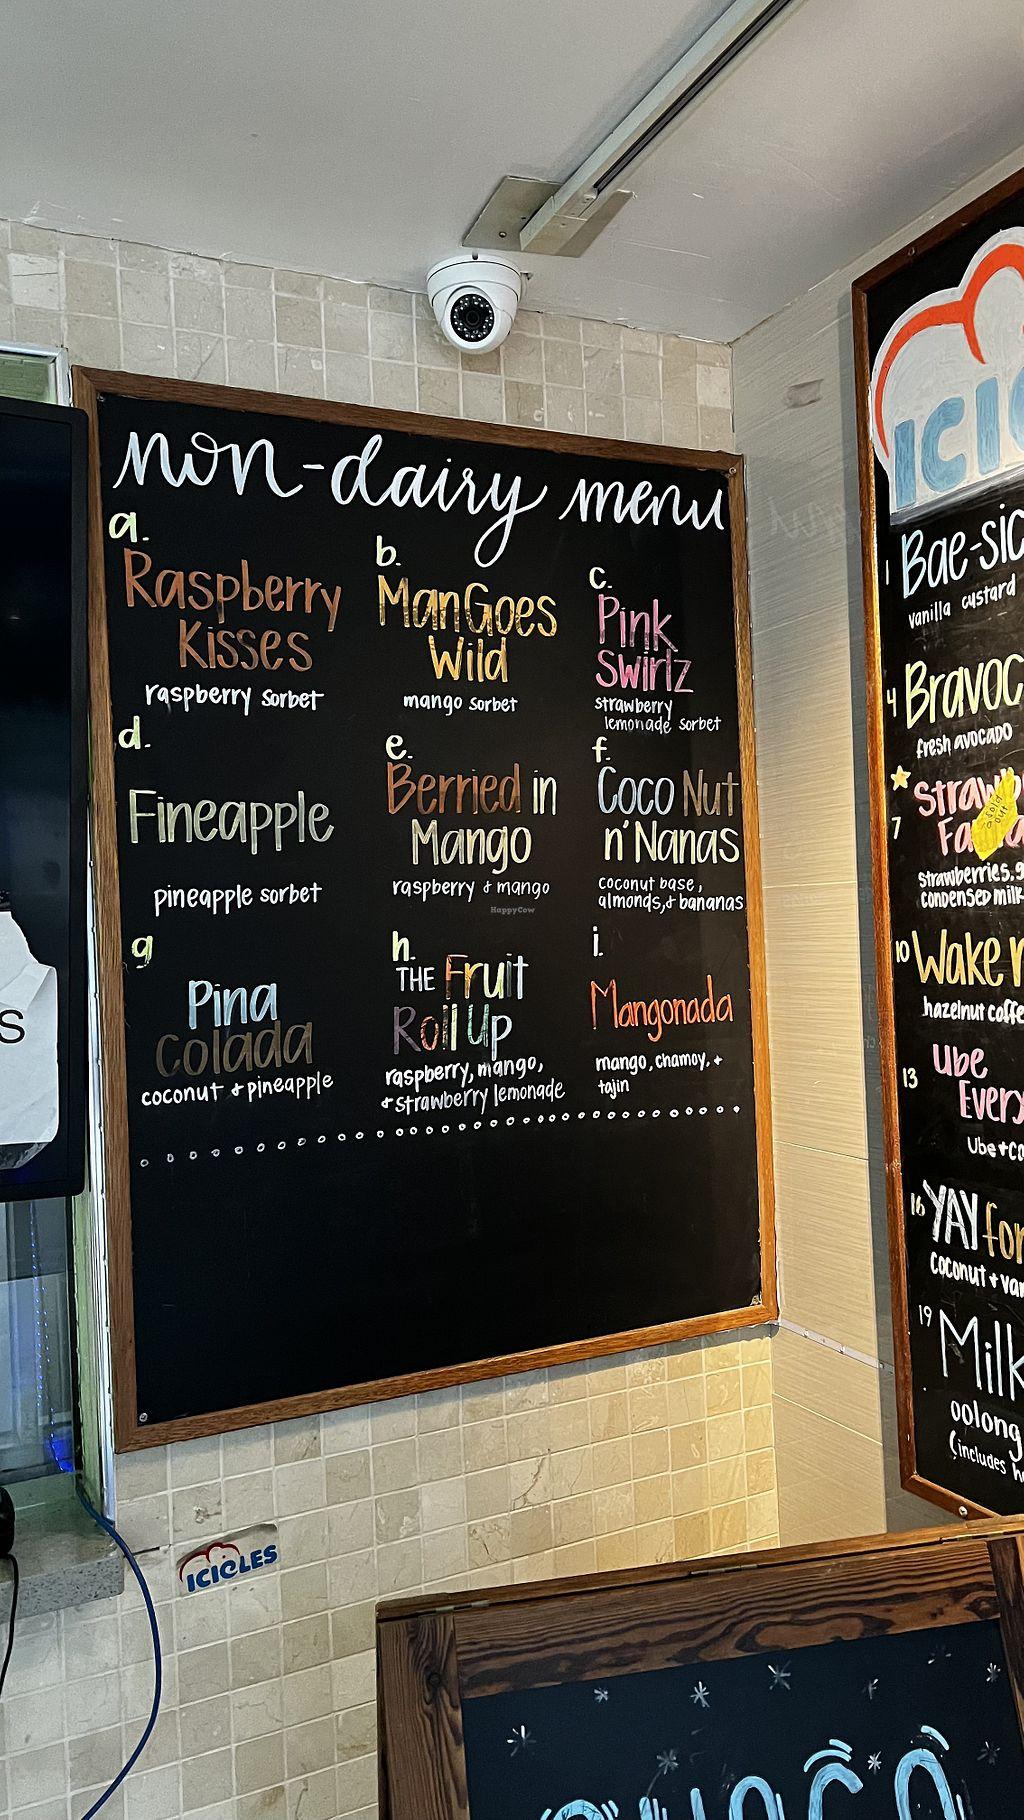 non-dairy menu
a.
Raspberry
Kisses
raspberry sorbet
b.
ManGoes
Wild
mango sorbet
c.
Pink
Swirlz
strawberry
lemonade sorbet
d.
Fineapple
pineapple sorbet
e.
Berried in
Mango
raspberry + mango
f.
Coco Nut
n' Nanas
coconut base,
almonds,+ bananas
g
Pina
Colada
coconut + pineapple
h.
THE Fruit
Roll Up
raspberry, mango,
+ strawberry lemonade
i.
Mangonada
mango, chamoy, +
tajin
HappyCow
S
ICICLES
ICIC
1
Bae-sic
vanilla custard
4
Bravoc
fresh avocado
7
sold
out
strawberries, g
condensed milk
10
Wake
hazelnut coffe
13
Ube
Every
Ube + co
16
YAY for
coconut + van
19
Milk
oolong
(includes h